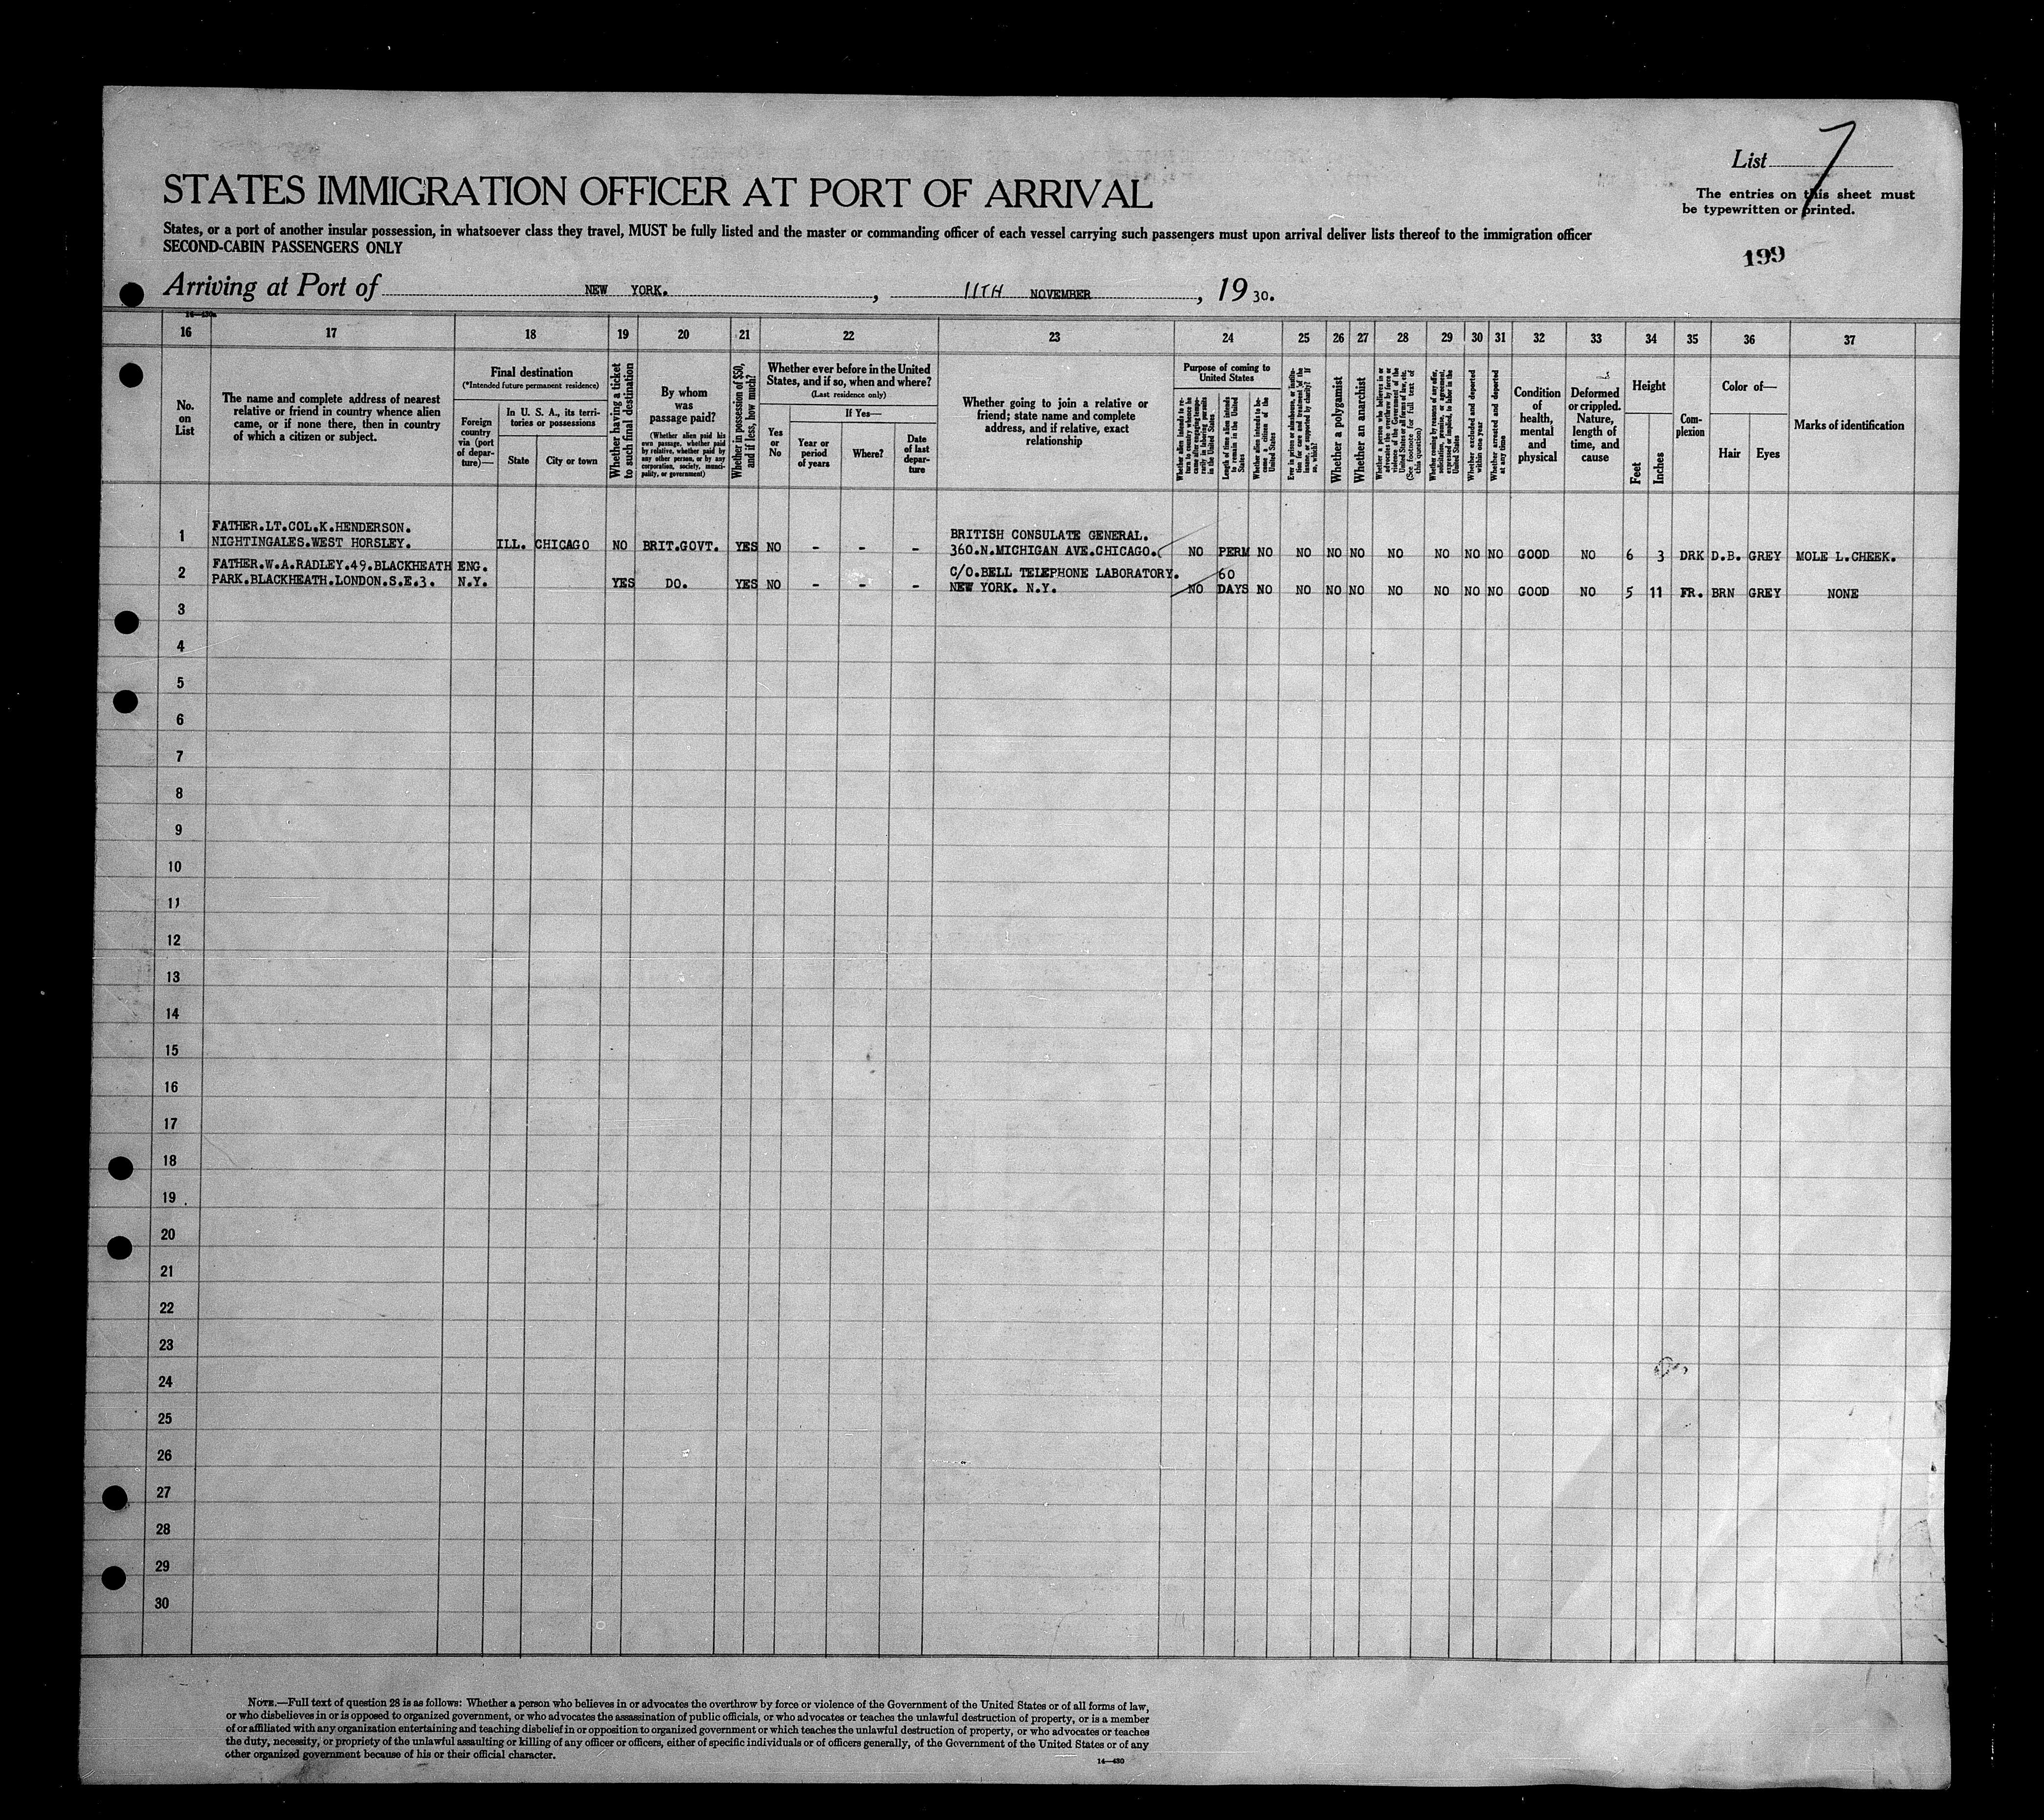 List 7
The entries on this sheet must
be typewritten or printed.
STATES IMMIGRATION OFFICER AT PORT OF ARRIVAL
States, or a port of another insular possession, in whatsoever class they travel, MUST be fully listed and the master or commanding officer of each vessel carrying such passengers must upon arrival deliver lists thereof to the immigration officer
SECOND-CABIN PASSENGERS ONLY
199
Arriving at Port of NEW YORK. , 11TH NOVEMBER , 19 30.
16 17 18 19 20 21 22 23 24 25 26 27 28 29 30 31 32 33 34 35 36 37
No.
on
List
The name and complete address of nearest
relative or friend in country whence alien
came, or if none there, then in country
of which a citizen or subject.
Final destination
(*Intended future permanent residence)
Foreign
country
via (port
of depar-
ture)—
In U. S. A., its terri-
tories or possessions
State
City or town
Whether having a ticket
to such final destination
By whom
was
passage paid?
(Whether alien paid his
own passage, whether paid
by relative, whether paid by
any other person, or by any
corporation, society, munici-
pality, or government)
Whether in possession of $50,
and if less, how much?
Whether ever before in the United
States, and if so, when and where?
(Last residence only)
Yes
or
No
If Yes—
Year or
period
of years
Where?
Date
of last
depar-
ture
Whether going to join a relative or
friend; state name and complete
address, and if relative, exact
relationship
Purpose of coming to
United States
Whether alien intends to re-
turn to country whence he
came after engaging tempo-
rarily in laboring pursuits
in the United States
Length of time alien intends
to remain in the United
States
Whether alien intends to be-
come a citizen of the
United States
Ever in prison or almshouse, or institu-
tion for care and treatment of the
insane, or supported by charity? If
so, which?
Whether a polygamist
Whether an anarchist
Whether a person who believes in or
advocates the overthrow by force or
violence of the Government of the
United States or all forms of law, etc.
(See footnote for full text of
this question)
Whether coming by reason of any offer,
solicitation, promise, or agreement,
expressed or implied, to labor in the
United States
Whether excluded and deported
within one year
Whether arrested and deported
at any time
Condition
of
health,
mental
and
physical
Deformed
or crippled.
Nature,
length of
time, and
cause
Height
Feet
Inches
Com-
plexion
Color of—
Hair
Eyes
Marks of identification
FATHER.LT.COL.K.HENDERSON. BRITISH CONSULATE GENERAL.
1 NIGHTINGALES.WEST HORSLEY. ILL. CHICAGO NO BRIT.GOVT. YES NO - - - 360.N.MICHIGAN AVE.CHICAGO. NO PERM NO NO NO NO NO NO NO NO GOOD NO 6 3 DRK D.B. GREY MOLE L.CHEEK.
FATHER.W.A.RADLEY.49.BLACKHEATH ENG. C/O.BELL TELEPHONE LABORATORY. 60
2 PARK.BLACKHEATH.LONDON.S.E.3. N.Y. YES DO. YES NO - - - NEW YORK. N.Y. NO DAYS NO NO NO NO NO NO NO NO GOOD NO 5 11 FR. BRN GREY NONE
3
4
5
6
7
8
9
10
11
12
13
14
15
16
17
18
19
20
21
22
23
24
25
26
27
28
29
30
NOTE.—Full text of question 28 is as follows: Whether a person who believes in or advocates the overthrow by force or violence of the Government of the United States or of all forms of law,
or who disbelieves in or is opposed to organized government, or who advocates the assassination of public officials, or who advocates or teaches the unlawful destruction of property, or is a member
of or affiliated with any organization entertaining and teaching disbelief in or opposition to organized government or which teaches the unlawful destruction of property, or who advocates or teaches
the duty, necessity, or propriety of the unlawful assaulting or killing of any officer or officers, either of specific individuals or of officers generally, of the Government of the United States or of any
other organized government because of his or their official character.
14—430